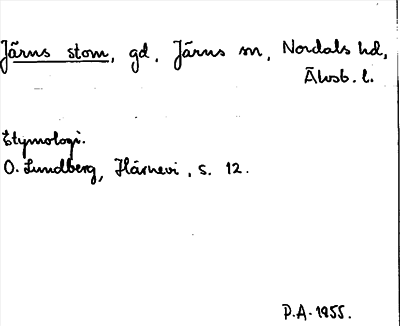 Järns stom, gd, Järns sn, Nordals hd,
Älvsb. l.
Etymologi.
O. Lundberg, Härnevi, s. 12.
P.A. 1955.